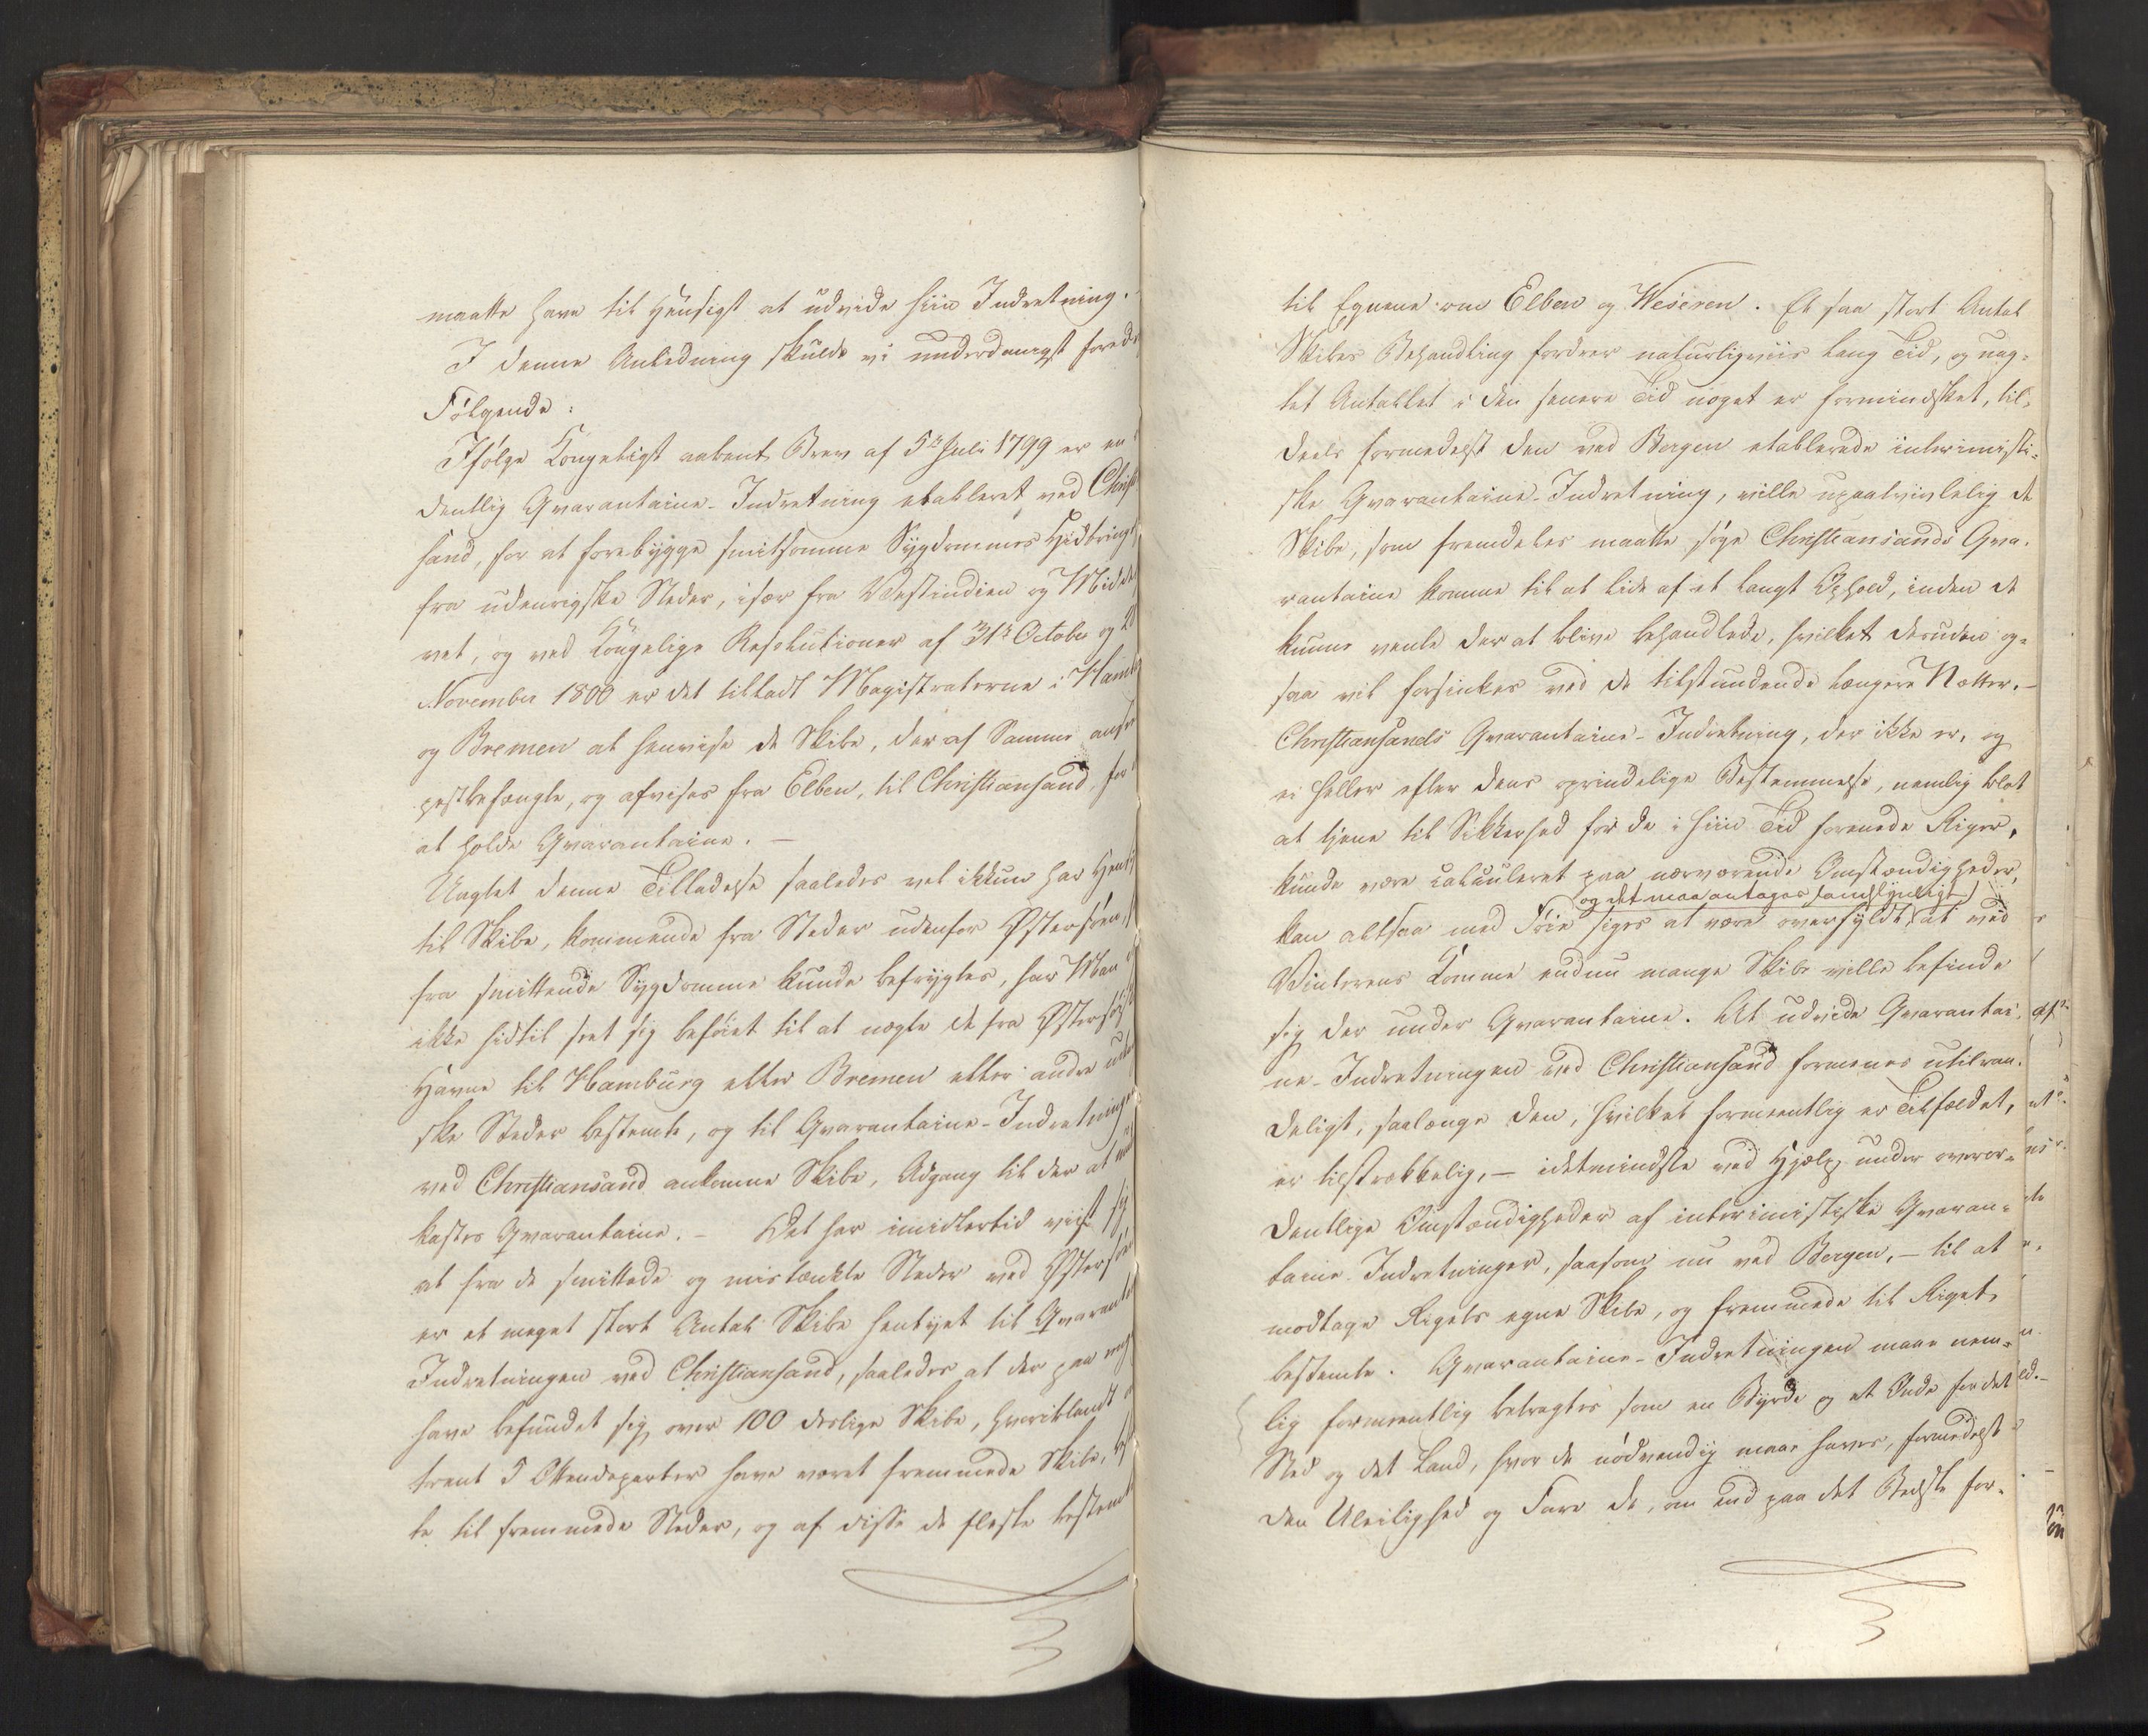 maatte have til Hensigt at udvide hiin Indretning.
I denne Anledning skulde vi underdanigst foredr
Følgende:
Ifølge Kongeligt aabent Brev af 5te Juli 1799 er en
dentlig Qvarantaine-Indretning etableret ved Christ
sand, for at forebygge smitsomme Sygdommes Hidbringe
fra udenrigske Steder, især fra Vestindien og Middel
vet, og ved Kongelige Resolutioner af 31te October og 28
November 1800 er det tilladt Magistraterne i Hamb
og Bremen at henvise de Skibe, der af Samme ansee
pestbefængte, og afvises fra Elben, til Christiansand, for
at holde Qvarantaine. —
Uagtet denne Tilladelse saaledes vel ikkun har Hens
til Skibe, kommende fra Steder udenfor Østersøen,
fra smittende Sygdomme kunde befrygtes, har Man
ikke hidtil seet sig beføiet til at nægte de fra Østersøe
Havne til Hamburg eller Bremen eller andre uden
ske Steder bestemte, og til Qvarantaine-Indretningen
ved Christiansand ankomne Skibe, Adgang til der at
kastes Qvarantaine. — Det har imidlertid viist sig
at fra de smittede og mistænkte Steder ved Østersøen
er et meget stort Antal Skibe hentyet til Qvarantai
Indretningen ved Christiansand, saaledes at der paa eng
have befundet sig over 100 deslige Skibe, hvoriblandt
trent 5 Ottendeparter have været fremmede Skibe, be
te til fremmede Steder, og af disse de fleste bestemt
til Egnene om Elben og Weseren. Et saa stort Antal
Skibes Behandling fordrer naturligviis lang Tid, og uag-
tet Antallet i den senere Tid noget er formindsket, til-
deels formedelst den ved Bergen etablerede interimisti-
ske Qvarantaine-Indretning, ville upaatvivlelig de
Skibe, som fremdeles maatte søge Christiansands Qva-
rantaine komme til at lide af et langt Ophold, inden de
kunne vente der at blive behandlede, hvilket desuden og-
saa vil forsinkes ved de tilstundende længere Nætter. —
Christiansands Qvarantaine-Indretning, der ikke er, og
ei heller efter dens oprindelige Bestemmelse, nemlig blot
at tjene til Sikkerhed for de i hiin Tid forenede Riger,
kunde være calculeret paa nærværende Omstændigheder,
og det maa antages sandsynligt
kan altsaa med Føie siges at være overfyldt, at ved
Vinterens Komme endnu mange Skibe ville befinde
sig der under Qvarantaine. At udvide Qvarantai-
ne-Indretningen ved Christiansand formenes utilraa-
deligt, saalænge den, hvilket formeentlig er Tilfældet,
er tilstrækkelig, — idetmindste ved Hjælp under overor-
dentlige Omstændigheder af interimistiske Qvaran-
taine-Indretninger, saasom nu ved Bergen, — til at
modtage Rigets egne Skibe, og fremmede til Riget
bestemte. Qvarantaine-Indretningen maae nem-
lig formeentlig betragtes som en Byrde og et Onde for det
Sted og det Land, hvor de nødvendig maae haves, formedelst
den Uleilighed og Fare de, om end paa det Bedste for-